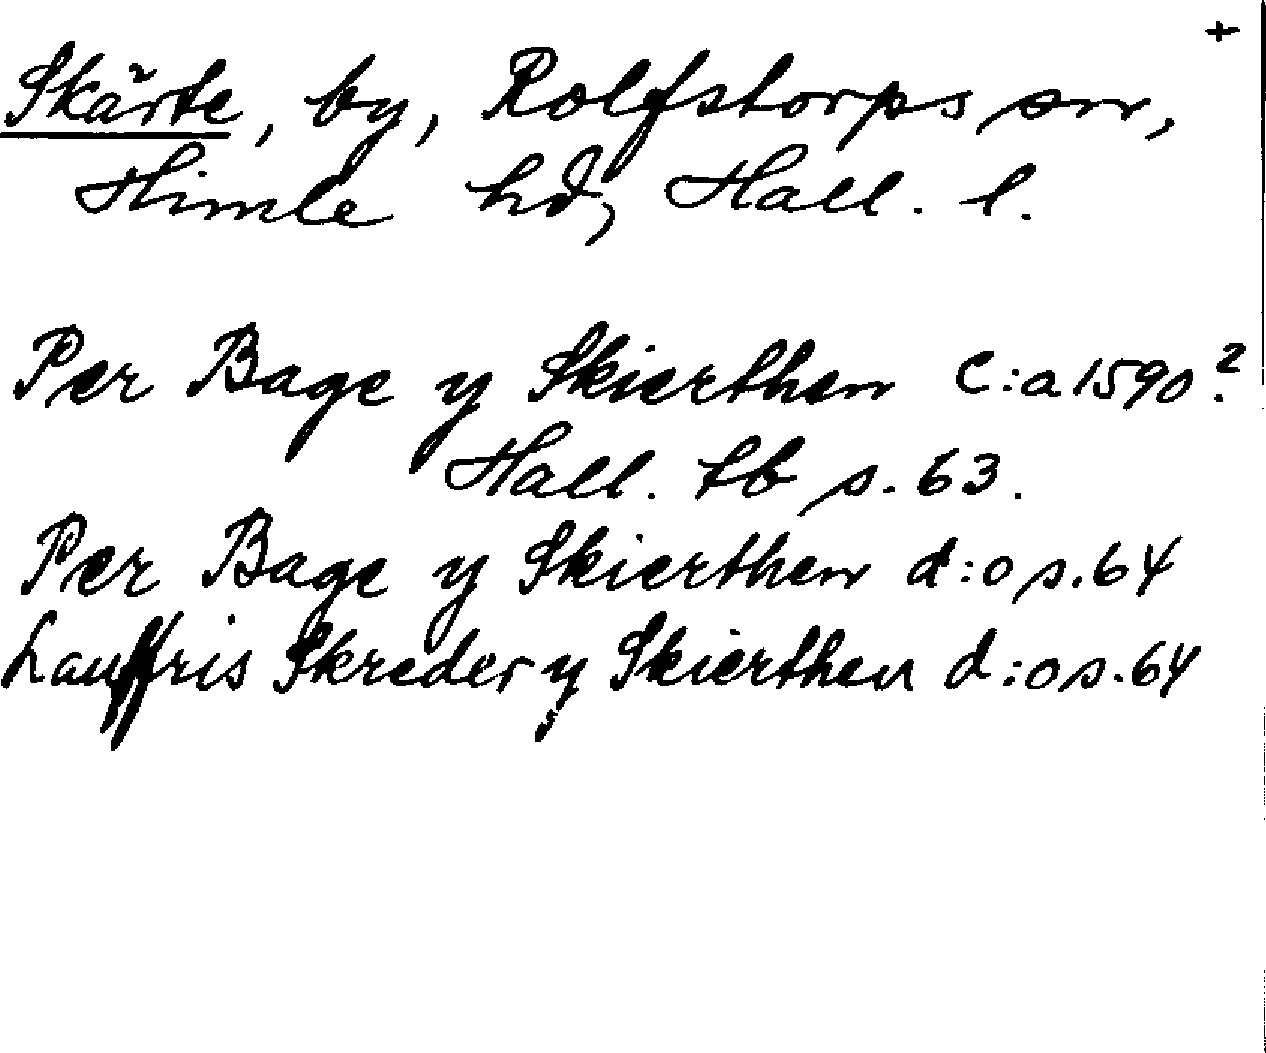 +
Skärte, by, Rolfstorps sn,
Himle hd, Hall. l.
Per Bage y Skierthen c:a 1590?
Hall. tb s. 63.
Per Bage y Skierthen d:o s. 64
Lauffris Skreder y Skierthen d:o s. 64